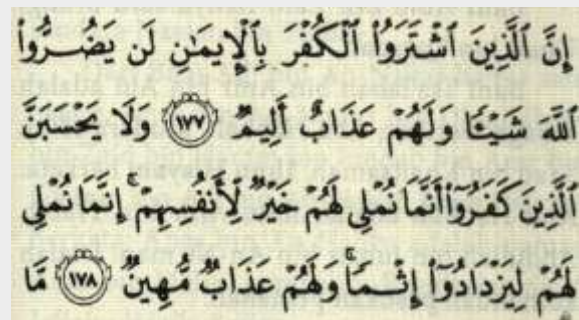 إِنَّ ٱلَّذِينَ ٱشْتَرَوُا۟ ٱلْكُفْرَ بِٱلْإِيمَـٰنِ لَن يَضُرُّوا۟
ٱللَّهَ شَيْـًٔا وَلَهُمْ عَذَابٌ أَلِيمٌ ١٧٧ وَلَا يَحْسَبَنَّ
ٱلَّذِينَ كَفَرُوٓا۟ أَنَّمَا نُمْلِى لَهُمْ خَيْرٌ لِّأَنفُسِهِمْ ۚ إِنَّمَا نُمْلِى
لَهُمْ لِيَزْدَادُوٓا۟ إِثْمًا ۚ وَلَهُمْ عَذَابٌ مُّهِينٌ ١٧٨ مَّا